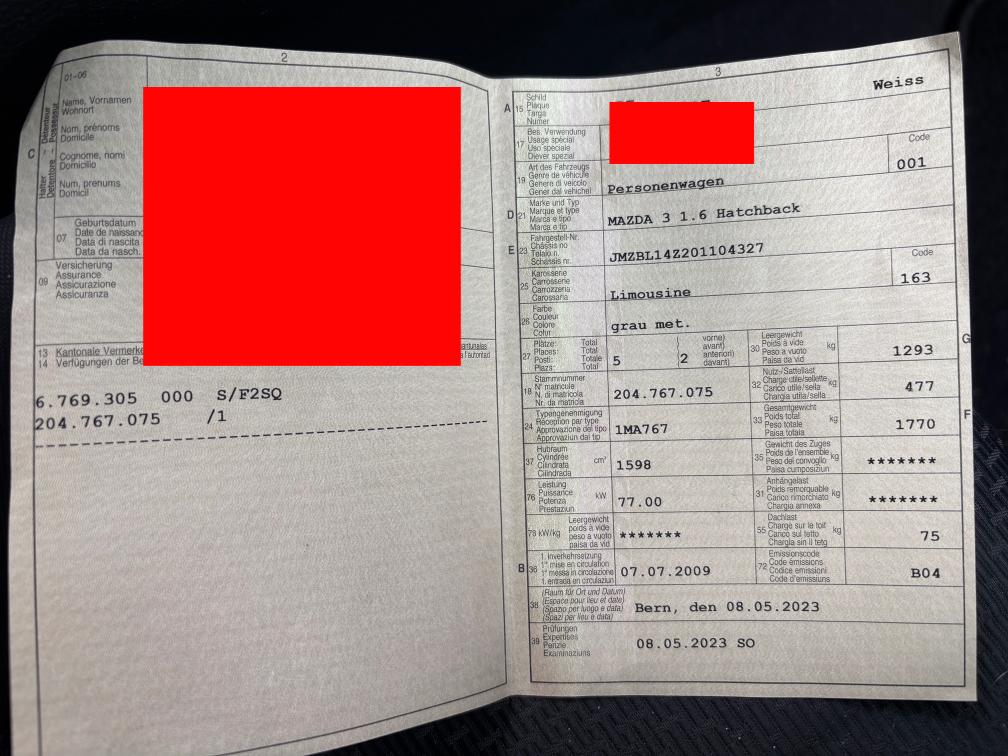 2
01-06
Halter - Détenteur
Detentore - Possessur
C
Name, Vornamen
Wohnort
Nom, prénoms
Domicile
Cognome, nomi
Domicilio
Num, prenums
Domicil
07
Geburtsdatum
Date de naissanc
Data di nascita
Data da nasch.
09
Versicherung
Assurance
Assicurazione
Assicuranza
13 Kantonale Vermerke
14 Verfügungen der Be
6.769.305 000 S/F2SQ
204.767.075 /1
3
A 15
Schild
Plaque
Targa
Numer
Weiss
17
Bes. Verwendung
Usage spécial
Uso speciale
Diever spezial
19
Art des Fahrzeugs
Genre de véhicule
Genere di veicolo
Gener dal vehichel
Personenwagen
Code
001
D 21
Marke und Typ
Marque et type
Marca e tipo
Marca e tip
MAZDA 3 1.6 Hatchback
E 23
Fahrgestell-Nr.
Châssis no
Telaio n.
Schassis nr.
JMZBL14Z201104327
25
Karosserie
Carrosserie
Carrozzeria
Carossaria
Limousine
Code
163
26
Farbe
Couleur
Colore
Colur
grau met.
27
Plätze: Total
Places: Total
Posti: Totale
Plazs: Total
5
vorne)
avant)
anteriori)
davant)
2
30
Leergewicht
Poids à vide
Peso a vuoto
Paisa da vid
kg
1293
G
18
Stammnummer
N° matricule
N. di matricola
Nr. da matricla
204.767.075
32
Nutz-/Sattellast
Charge utile/sellette
Carico utile/sella
Chargia utila/sella
kg
477
24
Typengenehmigung
Réception par type
Approvazione del tipo
Approvaziun dal tip
1MA767
33
Gesamtgewicht
Poids total
Peso totale
Paisa totala
kg
1770
F
37
Hubraum
Cylindrée
Cilindrata
Cilindrada
cm³
1598
35
Gewicht des Zuges
Poids de l'ensemble
Peso del convoglio
Paisa cumposiziun
kg
*******
76
Leistung
Puissance
Potenza
Prestaziun
kW
77.00
31
Anhängelast
Poids remorquable
Carico rimorchiato
Chargia annexa
kg
*******
78 kW/kg
Leergewicht
poids à vide
peso a vuoto
paisa da vid
*******
55
Dachlast
Charge sur le toit
Carico sul tetto
Chargia sin il tetg
kg
75
B 36
1. Inverkehrsetzung
1re mise en circulation
1a messa in circolazione
1. entrada en circulaziun
07.07.2009
72
Emissionscode
Code émissions
Codice emissioni
Code d'emissiuns
B04
38
(Raum für Ort und Datum)
(Espace pour lieu et date)
(Spazio per luogo e data)
(Spazi per lieu e data)
Bern, den 08.05.2023
39
Prüfungen
Expertises
Perizie
Examinaziuns
08.05.2023 SO